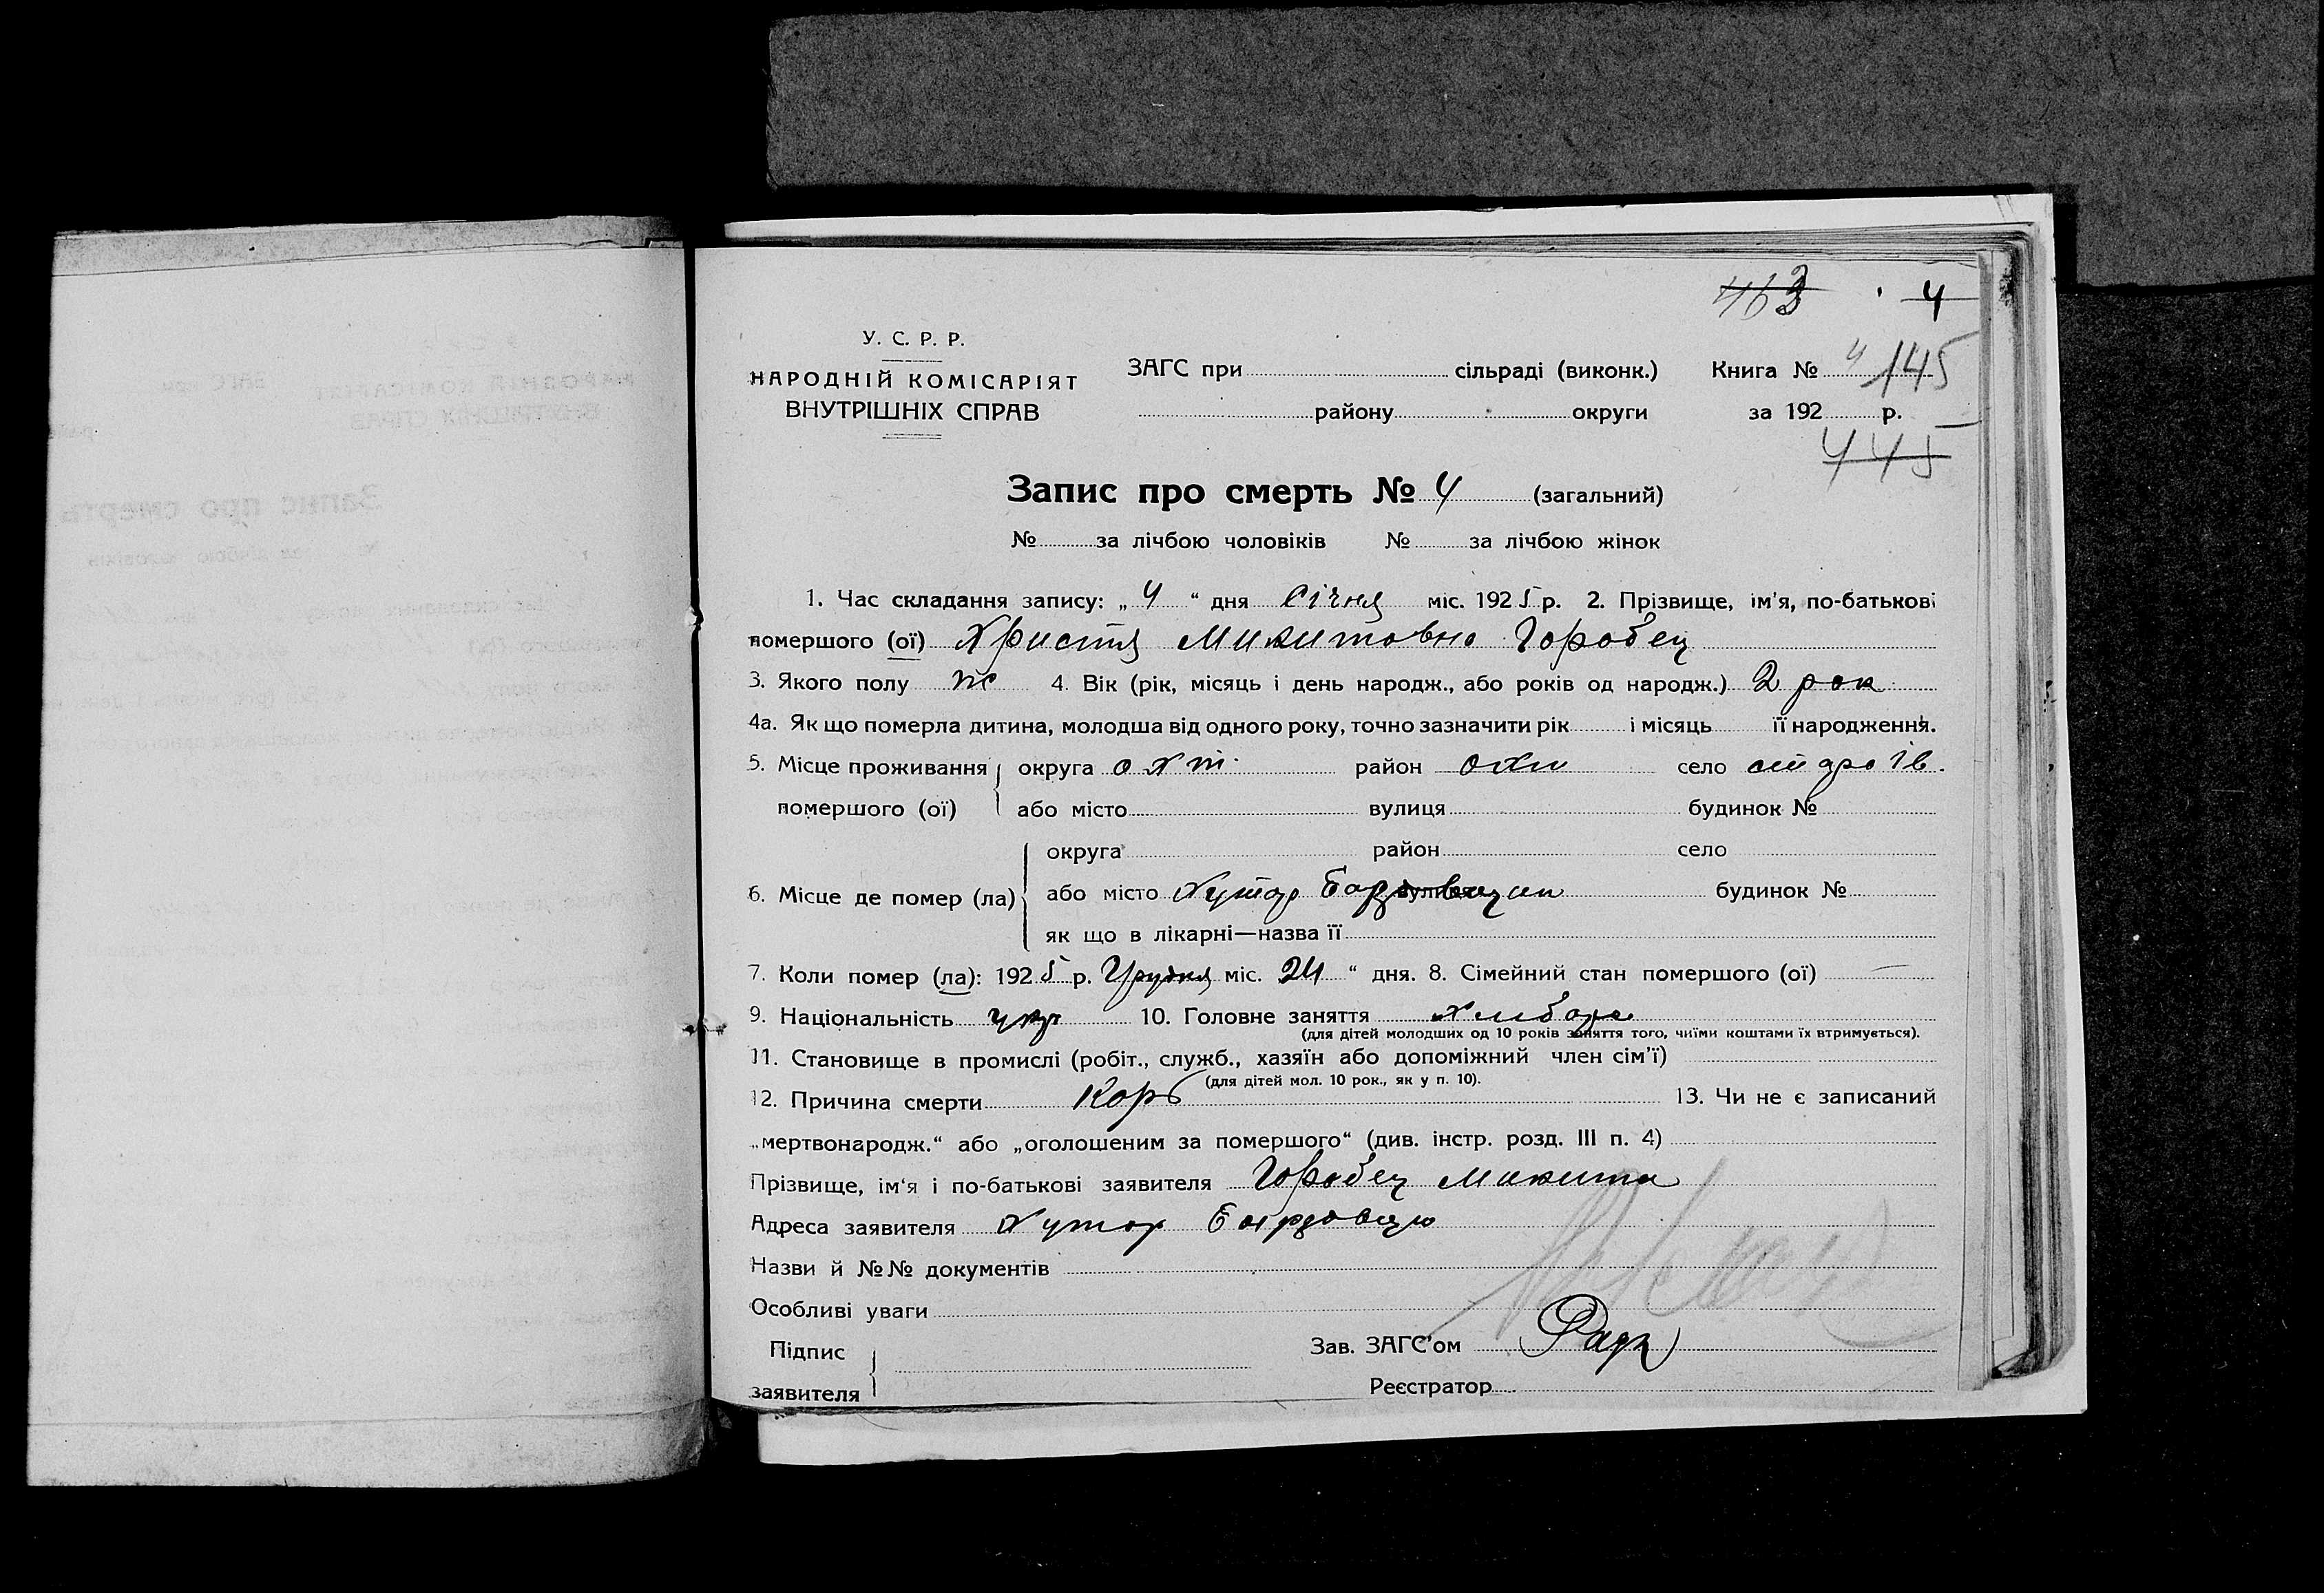 463 4
У. С. Р. Р.
НАРОДНІЙ КОМІСАРІЯТ
ВНУТРІШНІХ СПРАВ
ЗАГС при сільраді (виконк.) Книга № 4 145
району округи за 192 р.
445
Запис про смерть № 4 (загальний)
№ за лічбою чоловіків № за лічбою жінок
1. Час складання запису: „4“ дня Січня міс. 1925 р. 2. Прізвище, ім'я, по-батькові
помершого (ої) Христя Микитовна Горобец
3. Якого полу ж 4. Вік (рік, місяць і день народж., або років од народж.) 2 рок
4а. Як що померла дитина, молодша від одного року, точно зазначити рік і місяць її народження.
5. Місце проживання округа охт. район охт село
помершого (ої) або місто вулиця будинок №
округа район село
6. Місце де помер (ла) або місто Хутор вулиця будинок №
як що в лікарні—назва її
7. Коли помер (ла): 1925 р. Грудня міс. 24 “ дня. 8. Сімейний стан помершого (ої) —
9. Національність укр 10. Головне заняття хлибороб
(для дітей молодших од 10 років заняття того, чиїми коштами їх втримується).
11. Становище в промислі (робіт., служб., хазяїн або допоміжний член сім'ї)
(для дітей мол. 10 рок., як у п. 10).
12. Причина смерти Корь 13. Чи не є записаний
„мертвонародж.“ або „оголошеним за помершого“ (див. інстр. розд. III п. 4)
Прізвище, ім'я і по-батькові заявителя Горобец Микита
Адреса заявителя Хутор
Назви й №№ документів
Особливі уваги
Підпис
заявителя
Зав. ЗАГС'ом
Реєстратор